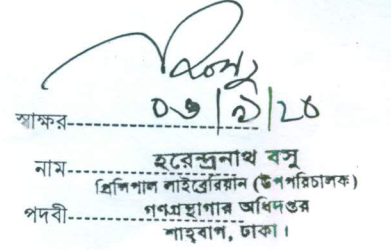 স্বাক্ষর
নাম হরেন্দ্রনাথ বসু
প্রিন্সিপাল লাইব্রেরিয়ান (উপপরিচালক)
পদবী গণগ্রন্থাগার অধিদপ্তর
শাহবাগ, ঢাকা।